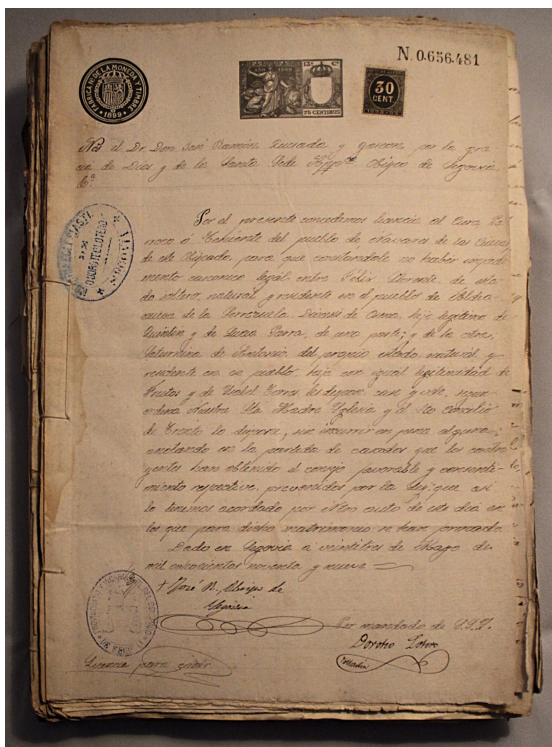 N. 0.656.481
FABRICA N. DE LA MONEDA Y TIMBRE
1899
75 CENTIMOS
30
CENT.
Nos el Dr. Don José Ramón Quesada y por la gra
cia de Dios y de la Santa Sede Obispo de Segovia
Por el presente concedemos licencia al Cura Pá
rroco ó Teniente del pueblo de Navares de las Cuevas
de este Obispado, para que constandole no haber impedi
mento canonico legal entre Felix Llorente, de esta
do soltero, natural y residente en el pueblo de Aldea
nueva de la Serrezuela Diócesis de Osma, hijo legitimo de
Quintin y de Parra, de una parte; y de la otra,
Saturnina de Antonio, del propio estado, natural y
residente en ese pueblo, hija con igual legitimidad de
Frutos y de Isabel los despose, case y vele, segun
ordena Nuestra Sta Madre Yglesia y el Sto Concilio
de Trento lo dispone, sin incurrir en pena alguna;
anotando en la partida de casados que los contra
yentes han obtenido el consejo favorable y consenti
miento respectivo, prevenidos por la Ley; que así
lo tenemos acordado por Ntro auto de este dia en
los que para dicho matrimonio se han formado.
Dado en Segovia a veintitres de Mayo de
mil ochocientos noventa y nueve
+ José R., Obispo de
Segovia
Por mandado de S.S.Y.
Doroteo
Licencia para